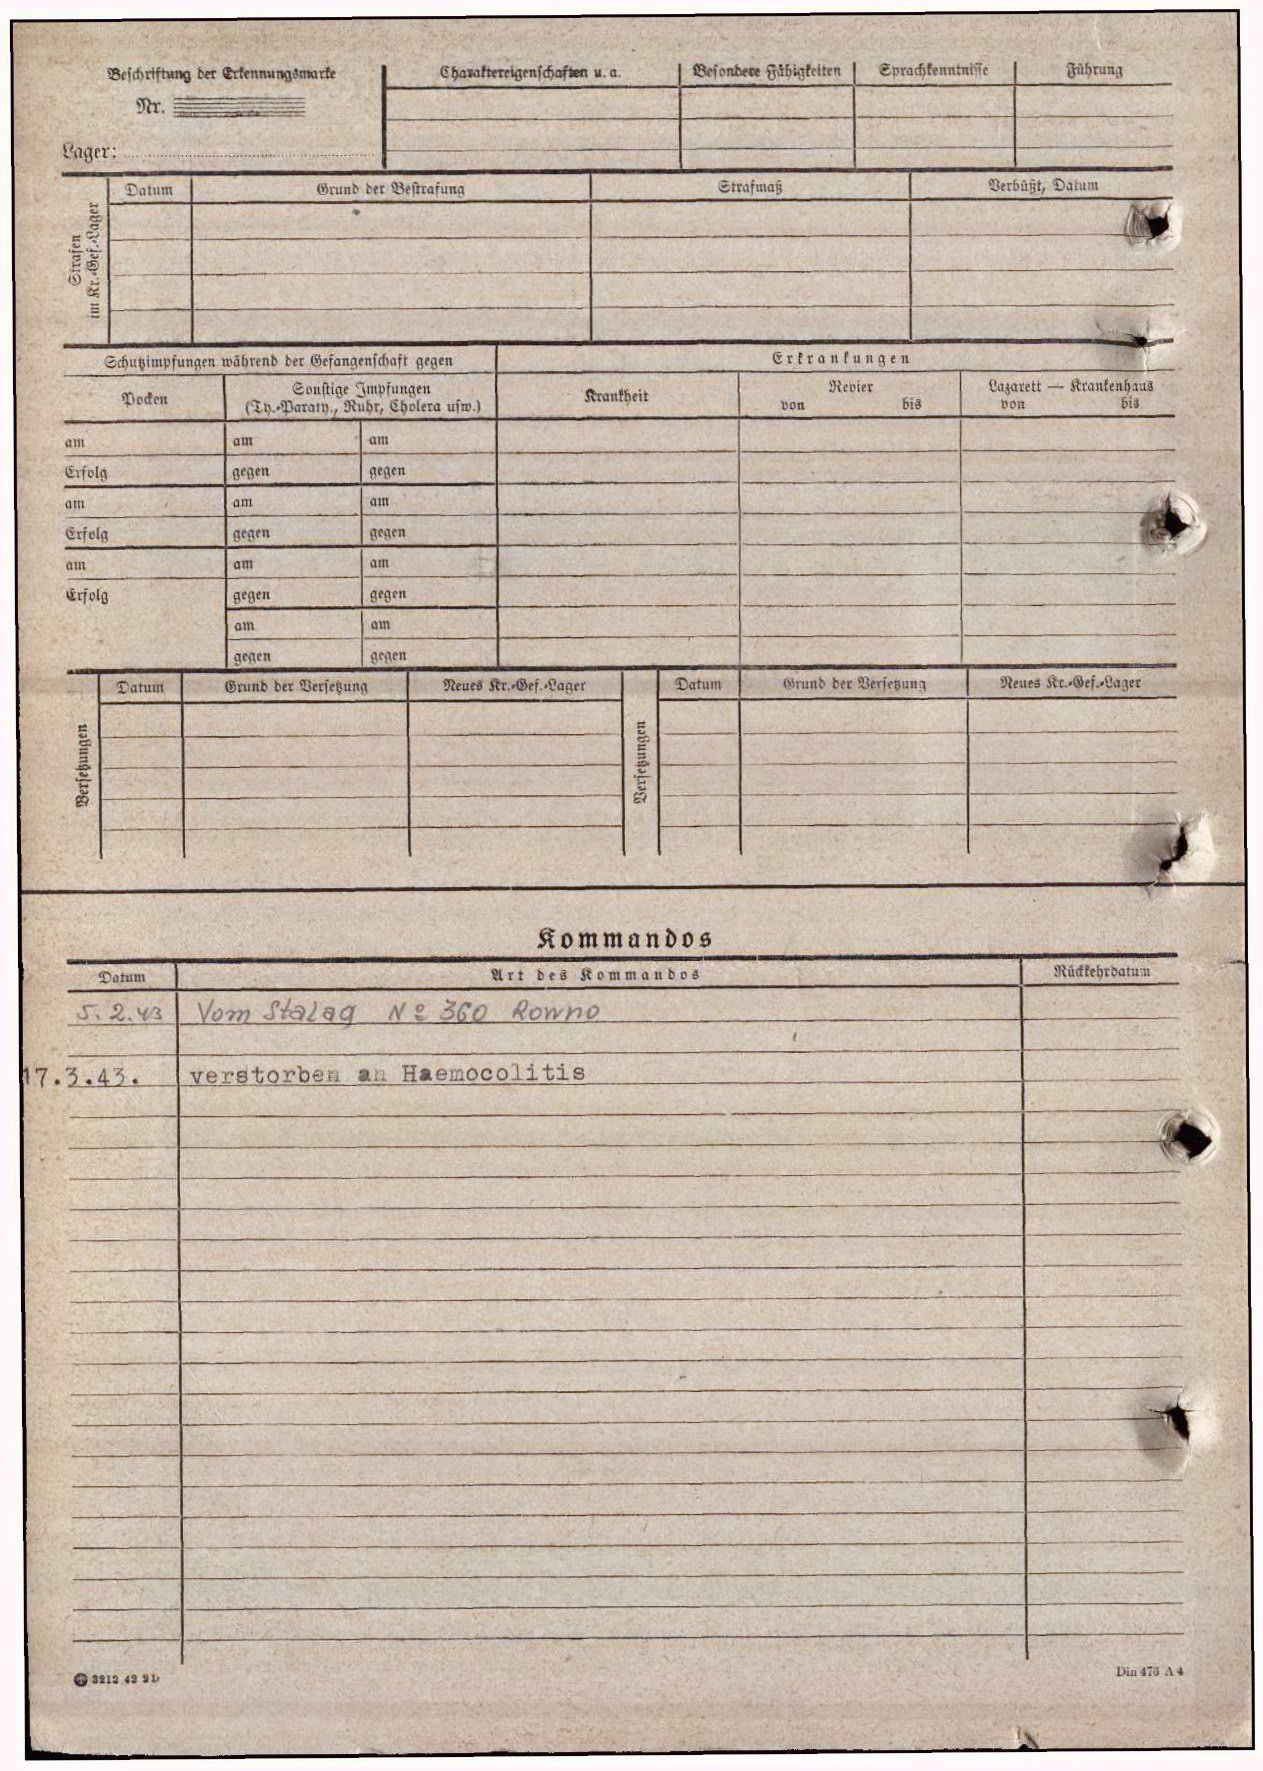 Beschriftung der Erkennungsmarke
Nr.
Lager:
Charaktereigenschaften u. a.
Besondere Fähigkeiten
Sprachkenntnisse
Führung
Strafen
im Kr.-Gef.-Lager
Datum
Grund der Bestrafung
Strafmaß
Verbüßt, Datum
Schutzimpfungen während der Gefangenschaft gegen
Erkrankungen
Pocken
Sonstige Impfungen
(Ty.-Paraty., Ruhr, Cholera usw.)
Krankheit
Revier
von bis
Lazarett — Krankenhaus
von bis
am am am
Erfolg gegen gegen
am am am
Erfolg gegen gegen
am am am
Erfolg gegen gegen
am am
gegen gegen
Versetzungen
Datum Grund der Versetzung Neues Kr.-Gef.-Lager
Versetzungen
Datum Grund der Versetzung Neues Kr.-Gef.-Lager
Kommandos
Datum Art des Kommandos Rückkehrdatum
5. 2. 43 Vom Stalag No 360 Rowno
17.3.43. verstorben an Haemocolitis
3212 43 2D
Din 476 A 4